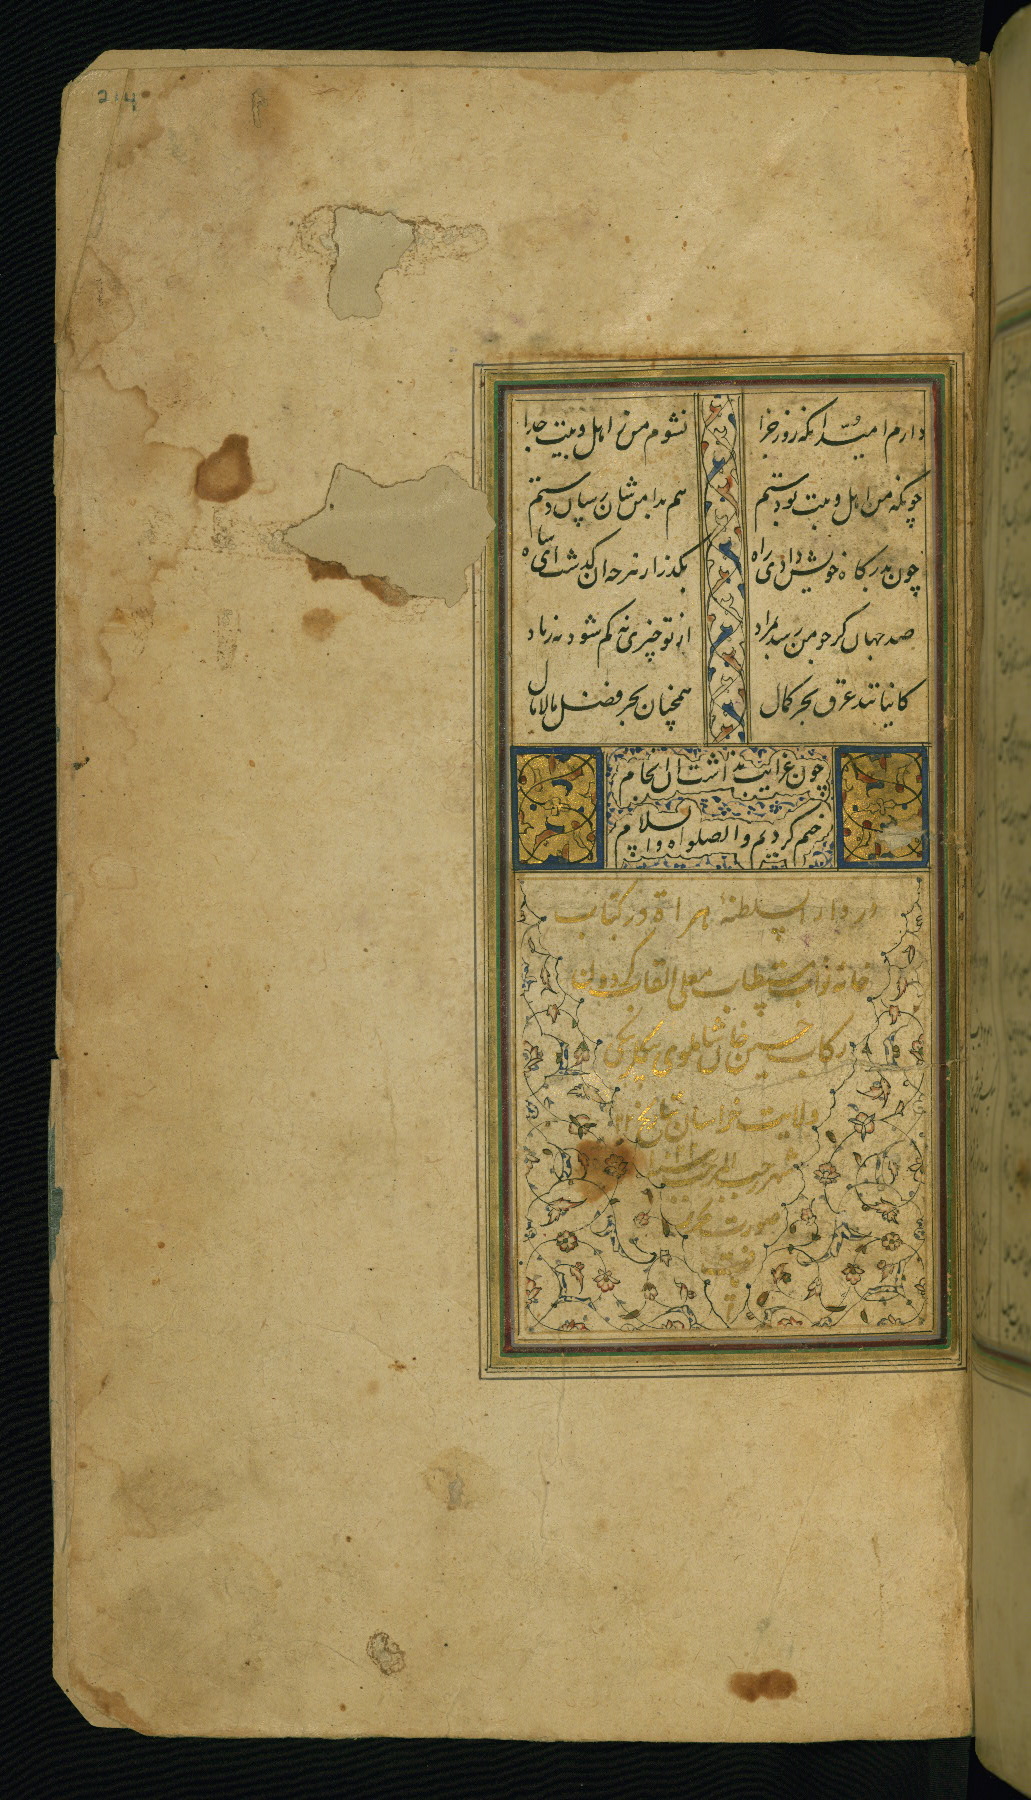 214
دارم امید آنکه روز جزا نشوم من ز اهل و بیت جدا
چونکه من اهل و بیت تو دستم هم بدامن شان رسان دستم
چون بدرکاه خویش دادی راه بکذر از هرچه ان کذشت ای شاه
صد جهان کر چو من رسد بمراد از تو چیزی نه کم شود نه زیاد
کاینات‌اند غرق بحر کمال همچنان بحر فضل مالامال
چون غرایب بذاشت ال انجام
ختم کردیم والصلواه والسلام
در دار السلطنهٔ هراة در کتاب
خانه نواب مستطاب معلی القاب کردون
رکاب حسین خان شاملوی بیکلربیکی
ولایت خراسان بتاریخ
شهر رجب المرجب
صورت تحریر
یافت